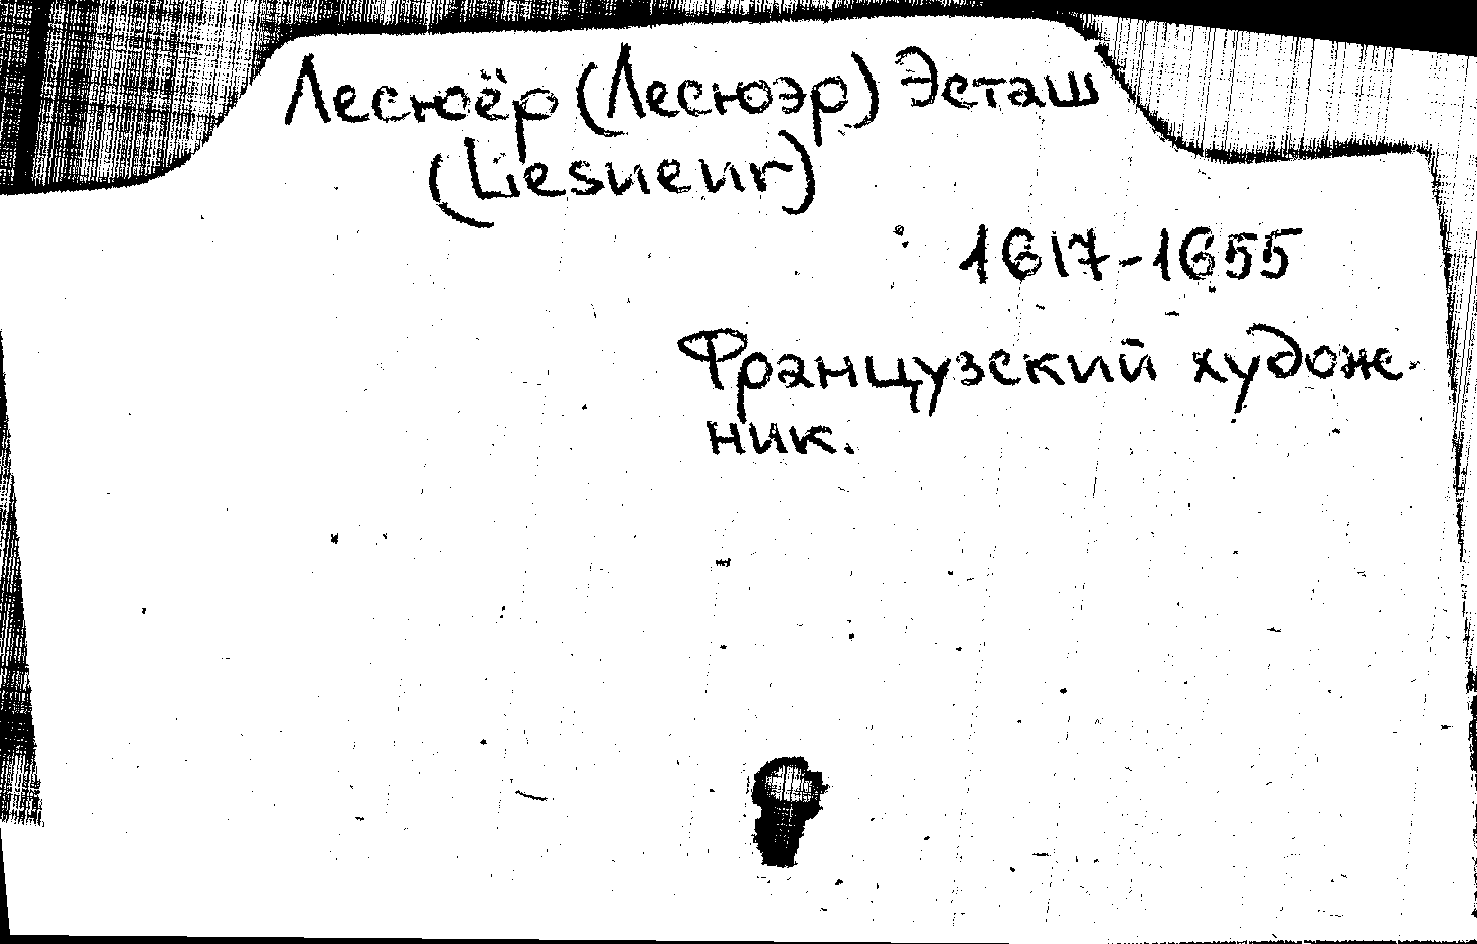 Лесюёр (Лесюэр) Эсташ
(Liesueur)
1617-1655
Французский худож-
ник.